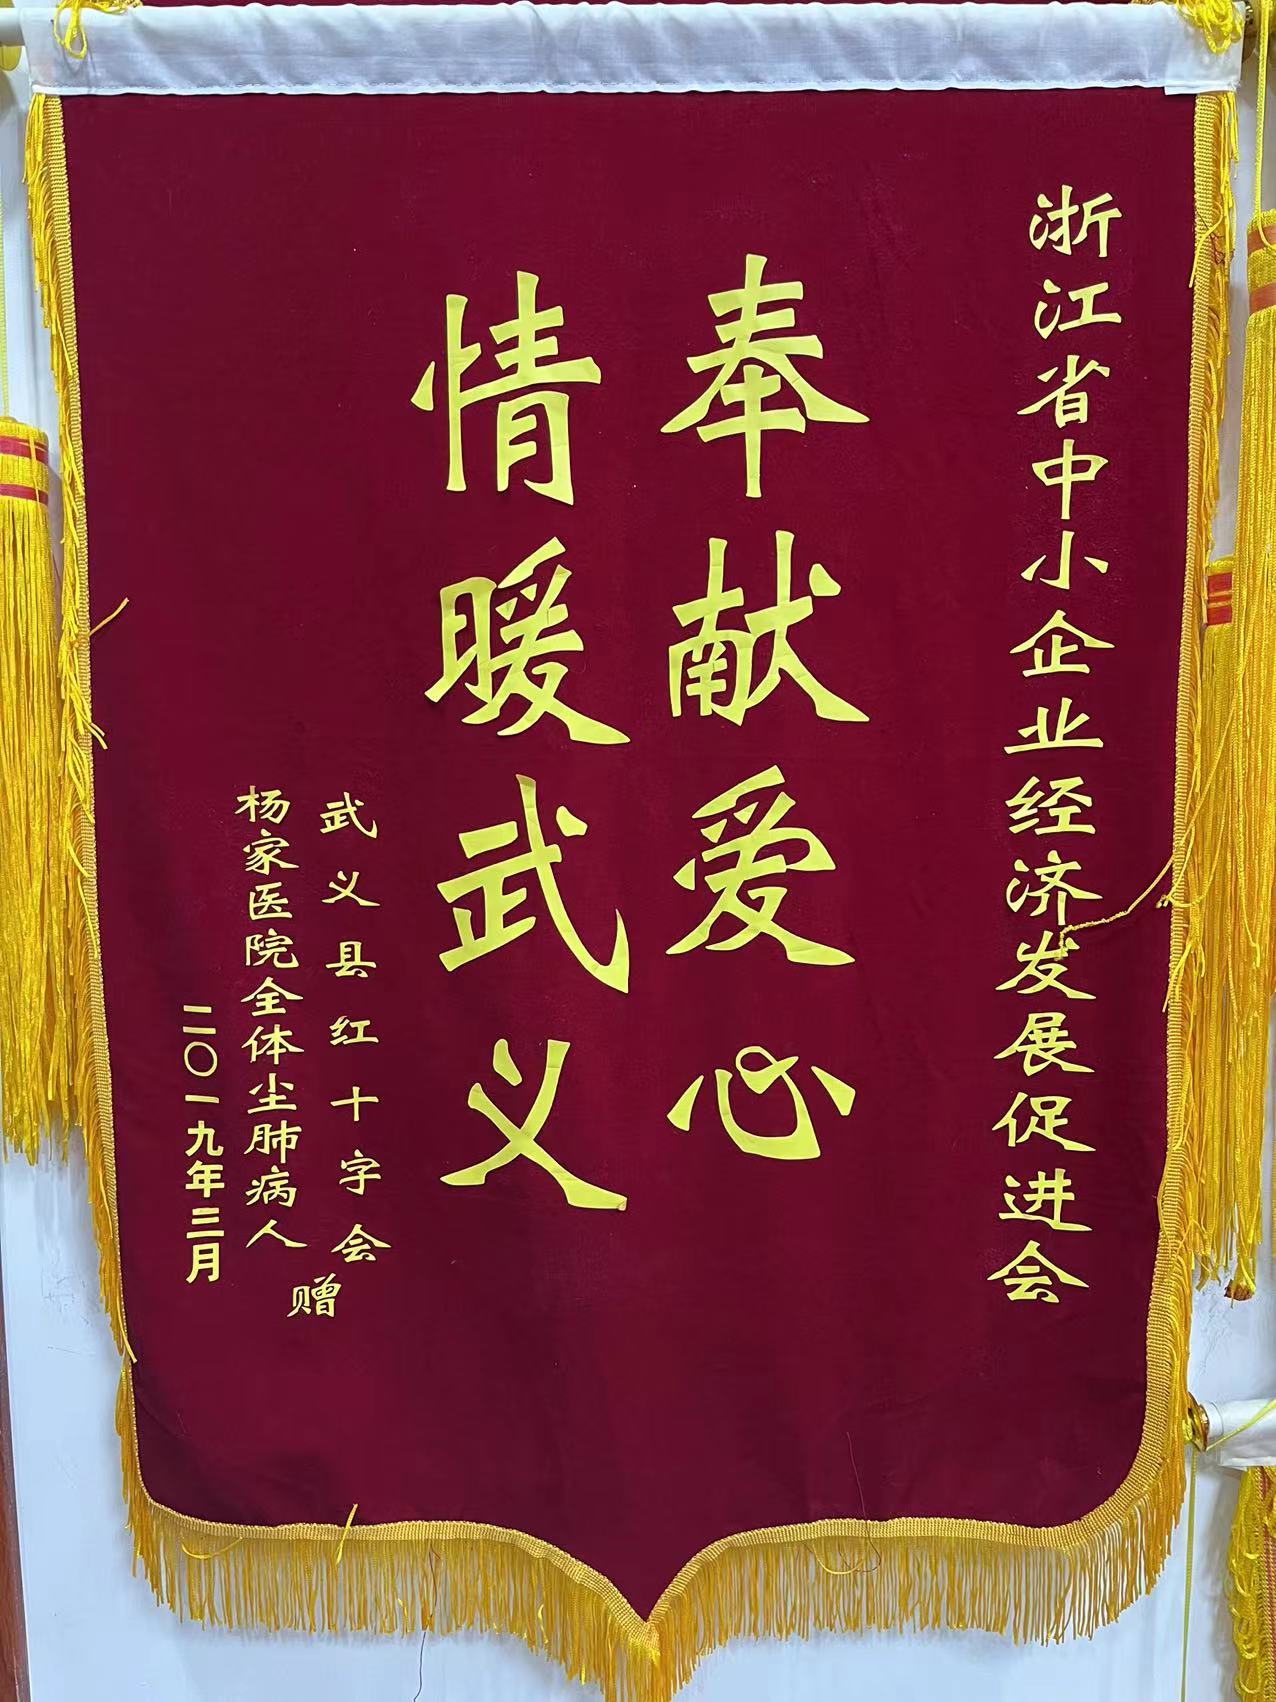 浙江省中小企业经济发展促进会
奉献爱心
情暖武义
武义县红十字会
杨家医院全体尘肺病人
赠
二〇一九年三月